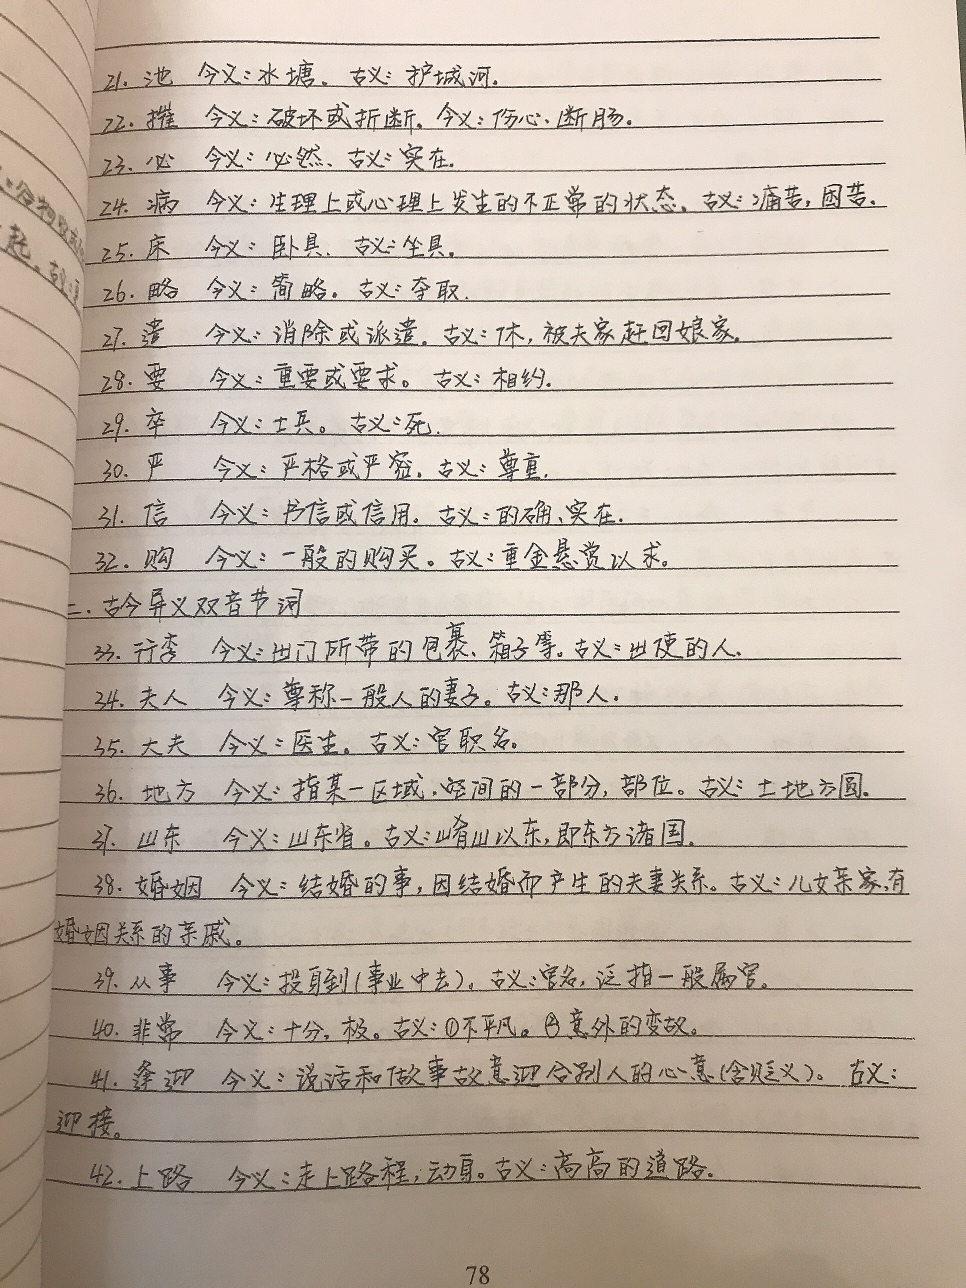 21. 池 今义:水塘。古义:护城河。
22. 摧 今义:破坏或折断。今义:伤心、断肠。
23. 必 今义:必然、古义:实在。
24. 病 今义:生理上或心理上发生的不正常的状态。古义:痛苦,困苦。
25. 床 今义:卧具、古义:坐具。
26. 略 今义:简略。古义:夺取.
27. 遣 今义:消除或派遣。古义:休,被夫家赶回娘家。
28. 要 今义:重要或要求。古义:相约.
29. 卒 今义:士兵。古义:死.
30. 严 今义:严格或严密。古义:尊重.
31. 信 今义:书信或信用。古义:的确、实在.
32. 购 今义:一般的购买。古义:重金悬赏以求。
二.古今异义双音节词
33. 行李 今义:出门所带的包裹、箱子等。古义:出使的人.
34. 夫人 今义:尊称一般人的妻子。古义:那人.
35. 大夫 今义:医生。古义:官职名。
36. 地方 今义:指某一区域,空间的一部分,部位。古义:土地方圆.
37. 山东 今义:山东省。古义:崤山以东,即东方诸国.
38. 婚姻 今义:结婚的事,因结婚而产生的夫妻关系。古义:儿女亲家,有
婚姻关系的亲戚。
39. 从事 今义:投身到(事业中去)。古义:官名,泛指一般属官。
40. 非常 今义:十分,极。古义:①不平凡。②意外的变故。
41. 逢迎 今义:说话和做事故意迎合别人的心意(含贬义)。古义:
迎接。
42. 上路 今义:走上路程,动身。古义:高高的道路.
78